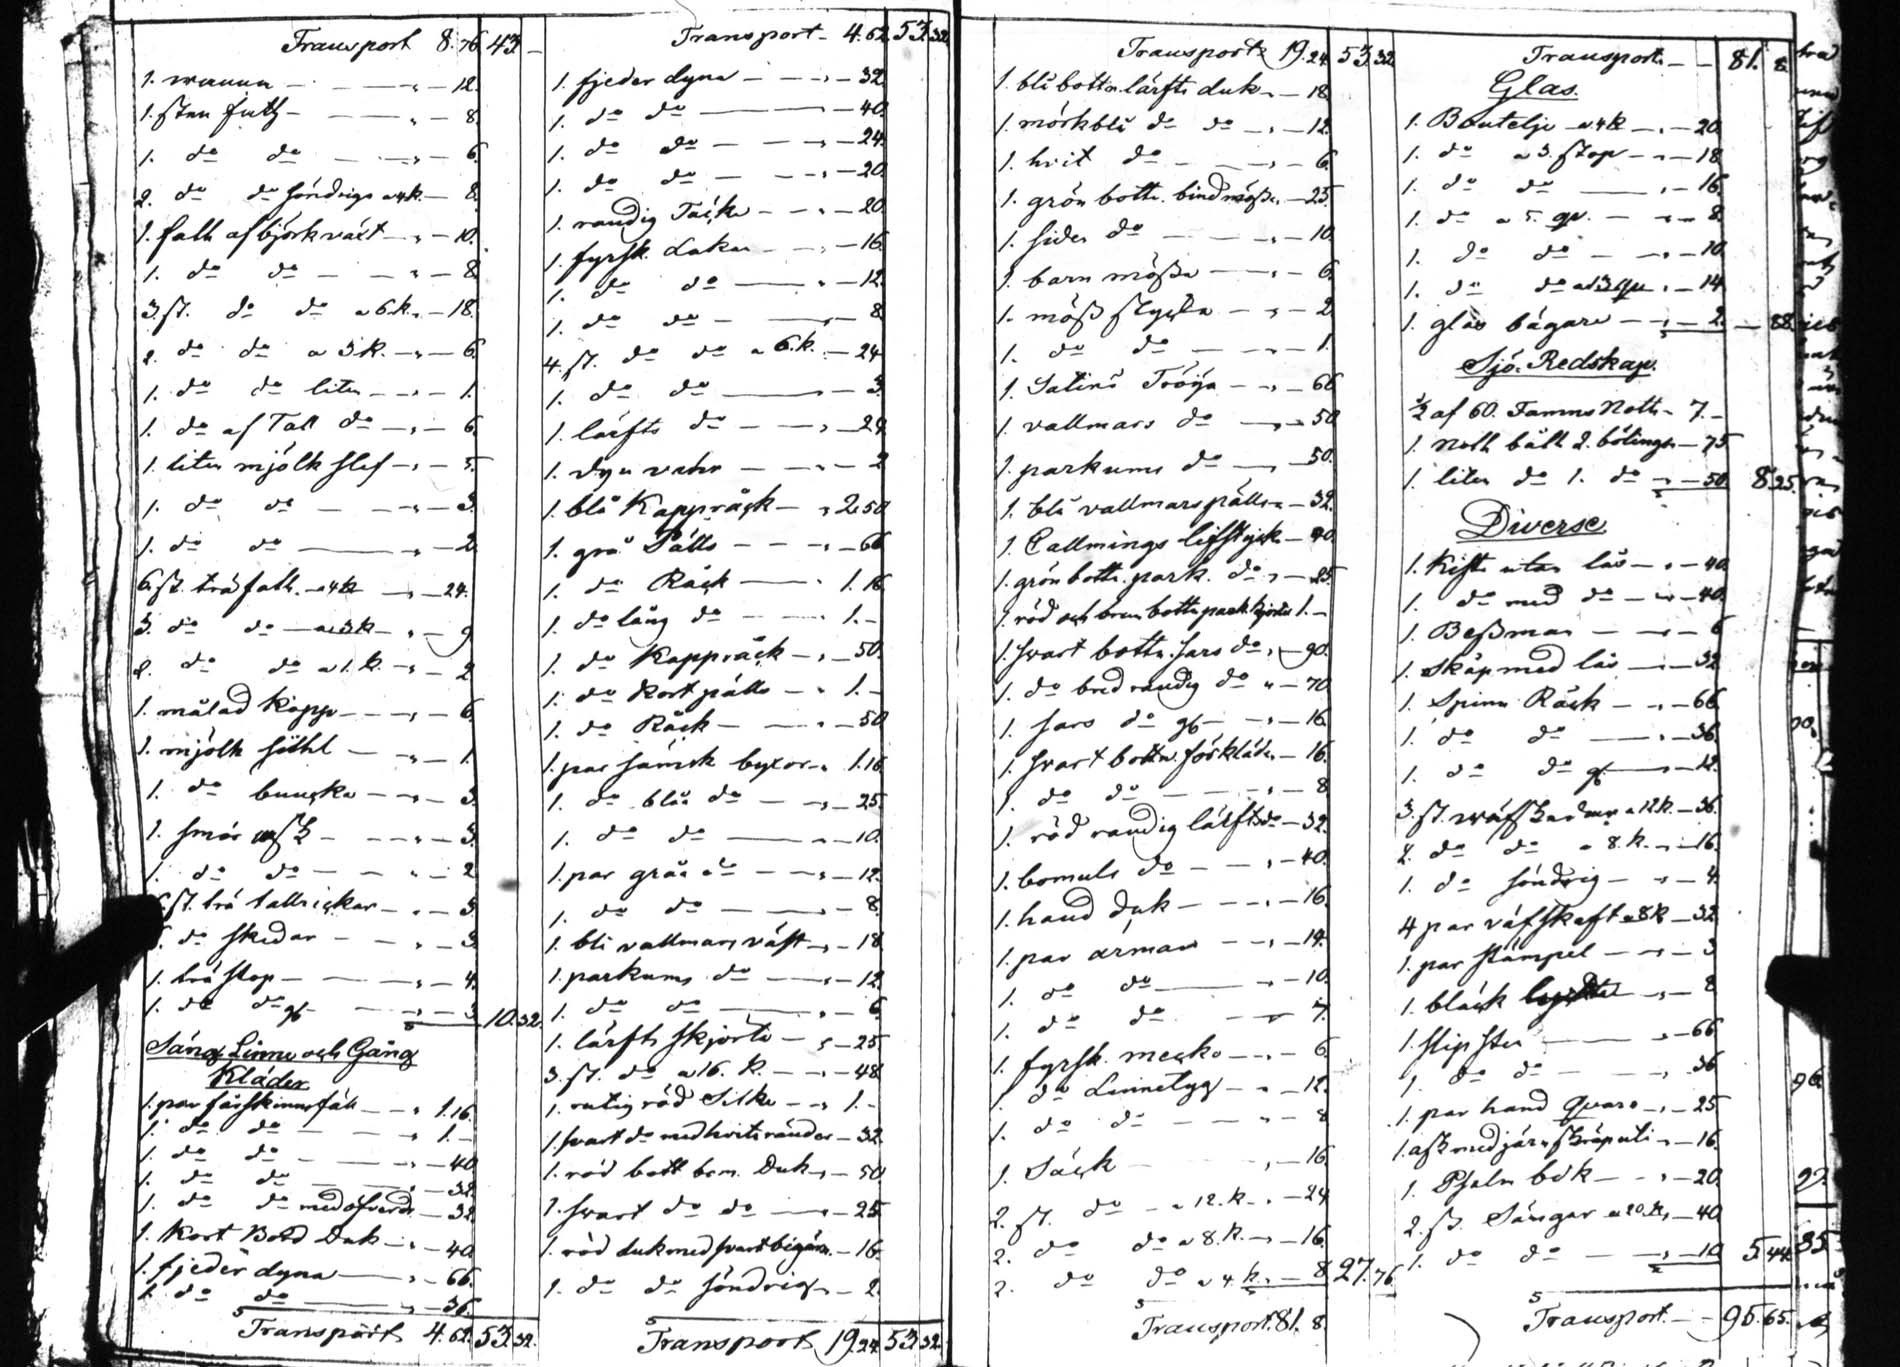 Transport 8.76 43.-
1. wanna - - - 12.
1. sten fath - - - 8.
1. do do - - - 6.
2. do do söndrige a 4k. - 8.
1. fath af björkväxt - - 10.
1. do do - - - 8.
3. st. do do a 6k. - 18.
2. do do a 3k. - - 6.
1. do do liten - - 1.
1. do af Tall do - - 6.
1. liten mjölk slef - - 5.
1. do do - - - 3.
1. do do - - - 2.
6. st. träfath. a 4k - - 24.
3. do do - a 3k - - 9
2. do do a 1. k. - - 2
1. målad Kopp - - - 6.
1. mjölk - - 1.
1. do buncka - - - 3.
1. smör ask - - - 3.
1. do do - - - 2
st. trä tallrickar - - 3.
do skedar - - - 3.
1. trä stop - - - 4.
1. do do gl - - - 3. 10.32.
Säng Linne och Gång
Kläder
1. par fårskinnsfäll - - 1.16.
1. do do - - - 1.-
1. do do - - - 40
1. do do - - - 32.
1. do do med öfverdr. - 32.
1. Kort Bord Duk - - 40.
1. fjeder dyna - - 66.
1. do do - - - 36.
Transport 4.62. 53.32.
Transport - 4.62. 53.32
1. fjeder dyna - - - 32
1. do do - - 40.
1. do do - - - 24.
1. do do - - - 20.
1. randig Täcke - - - 20.
1. fyrsk. Lakan - - - 16.
1. do do - - - 12.
1. do do - - - 8
4. st. do do a 6.k. - 24
1. do do - - 3.
1. lärfts do - - - 24.
1. dyn vahr - - - 2
1. blå Kappråck - - 2.50
1. grå Pälls - - - 66
1. do Råck - - 1.16.
1. do lång do - - 1.-
1. do Kappråck - - 50.
1. do Kort pälls - - 1.-
1. do Råck - - - 50
1. par sämsk byxor - 1.16.
1. do blåa do - - - 25.
1. do do - - 10.
1. par gråa do - - - 12.
1. do do - - - 8.
1. blå vallmars väst - - 18
1. parkums do - - - 12.
1. do do - - - 6.
1. lärfts skjorta - - 25
3. st. do a 16. k. - - 48
1. rutig röd Silke - - 1.-
1. svart do med hvita ränder - 32.
1. röd bott bom. Duk - - 50
1. svart do do - - 25.
1. röd duk med svart bigärn. - 16.
1. do do söndrig - - 2.
Transport 19.24 53.32
Transport 19.24 53.32
1. blå botten lärfts duk - - 18.
1. mörkblå do do - - 12.
1. hvit do - - - 6.
1. grön botte. bindmössa - 25.
1. siden do - - - 10.
1. barn mössa - - - 6.
1. möss stycke - - - 2
1. do do - - - 1.
1. Satins Tröja - - - 66
1. vallmars do - - 50
1. parkums do - - 50.
1. blå vallmars pälls - - 32.
1. Callmings lifstyck - 40.
1. grön botte. park. do - - 25
1. röd och brun botte park. kjortel 1.-
1. svart botte. sars do - - 90.
1. do bred randig do - - 70
1. sars do gl - - - 16.
1. svart botte. förkläde - 16.
1. do do - - - - 8
1. röd randig lärfts do - 32.
1. bomuls do - - - 40.
1. hand duk - - - 16.
1. par ärmar - - - 14.
1. do do - - - 10.
1. do do - - 7.
1. fyrsk. - - - 6.
1. do Linnetyg - - 12.
1. do do - - - 8
1. Säck - - 16.
2. st. do - a 12. k. - - 24
2. do do a 8. k. - - 16.
2. do do a 4 k. - 8. 27.76.
Transport. 81. 8.
Transport. - - 81. 8.
Glas.
1. Boutelje a 4k - - 20.
1. do a 3. stop - - 18.
1. do do - - 16.
1. do a 5. qv. - - - 8
1. do do - - - 10
1. do do a 3 qv. - - 14
1. glas bägare - - - 2. - 88.
Sjö-Redskap.
1/2 af 60. Famns Noth - 7.-
1. Noth båth 2. bötingar - 75
1. liten do 1. do - - 50. 8.25.
Diverse
1. Kista utan lås - - 40.
1. do med do - - 40.
1. Bessman - - - 6
1. Skåp med lås - - 32
1. Spinn Råck - - - 66.
1. do do - - - 36.
1. do do gl - - - 12.
3. st. wäfskedar a 12k. - 36.
2. do do a 8. k. - - 16.
1. do söndrig - - - 4.
4 par väfskaft a 8k - 32.
1. par stämpel - - - 3
1. bläck - - 8
1. slipsten - - 66
1. do do - - - 36
1. par hand qvarn - - 25
1. ask med järnskräp uti - - 16.
1. Psalm bok - - - 20.
2. st. Sängar a 20.k. - 40
1. do do - - - 10 5.44
Transport. - - 95.65.